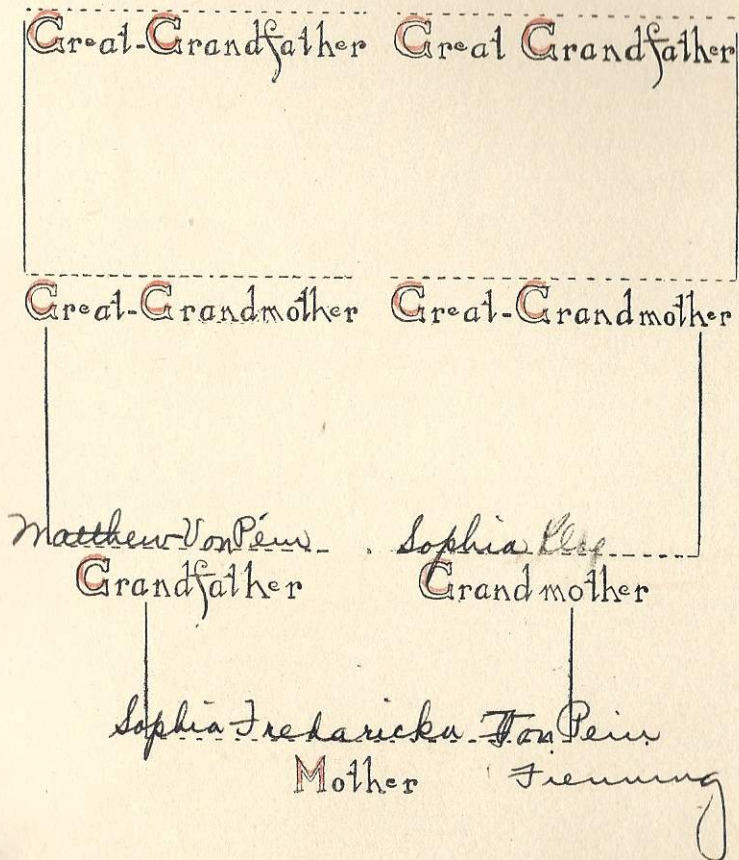 Great-Grandfather Great Grandfather
Great-Grandmother Great-Grandmother
Matthew Von Pein Sophia
Grandfather Grandmother
Sophia Fredaricka Von Pein
Mother